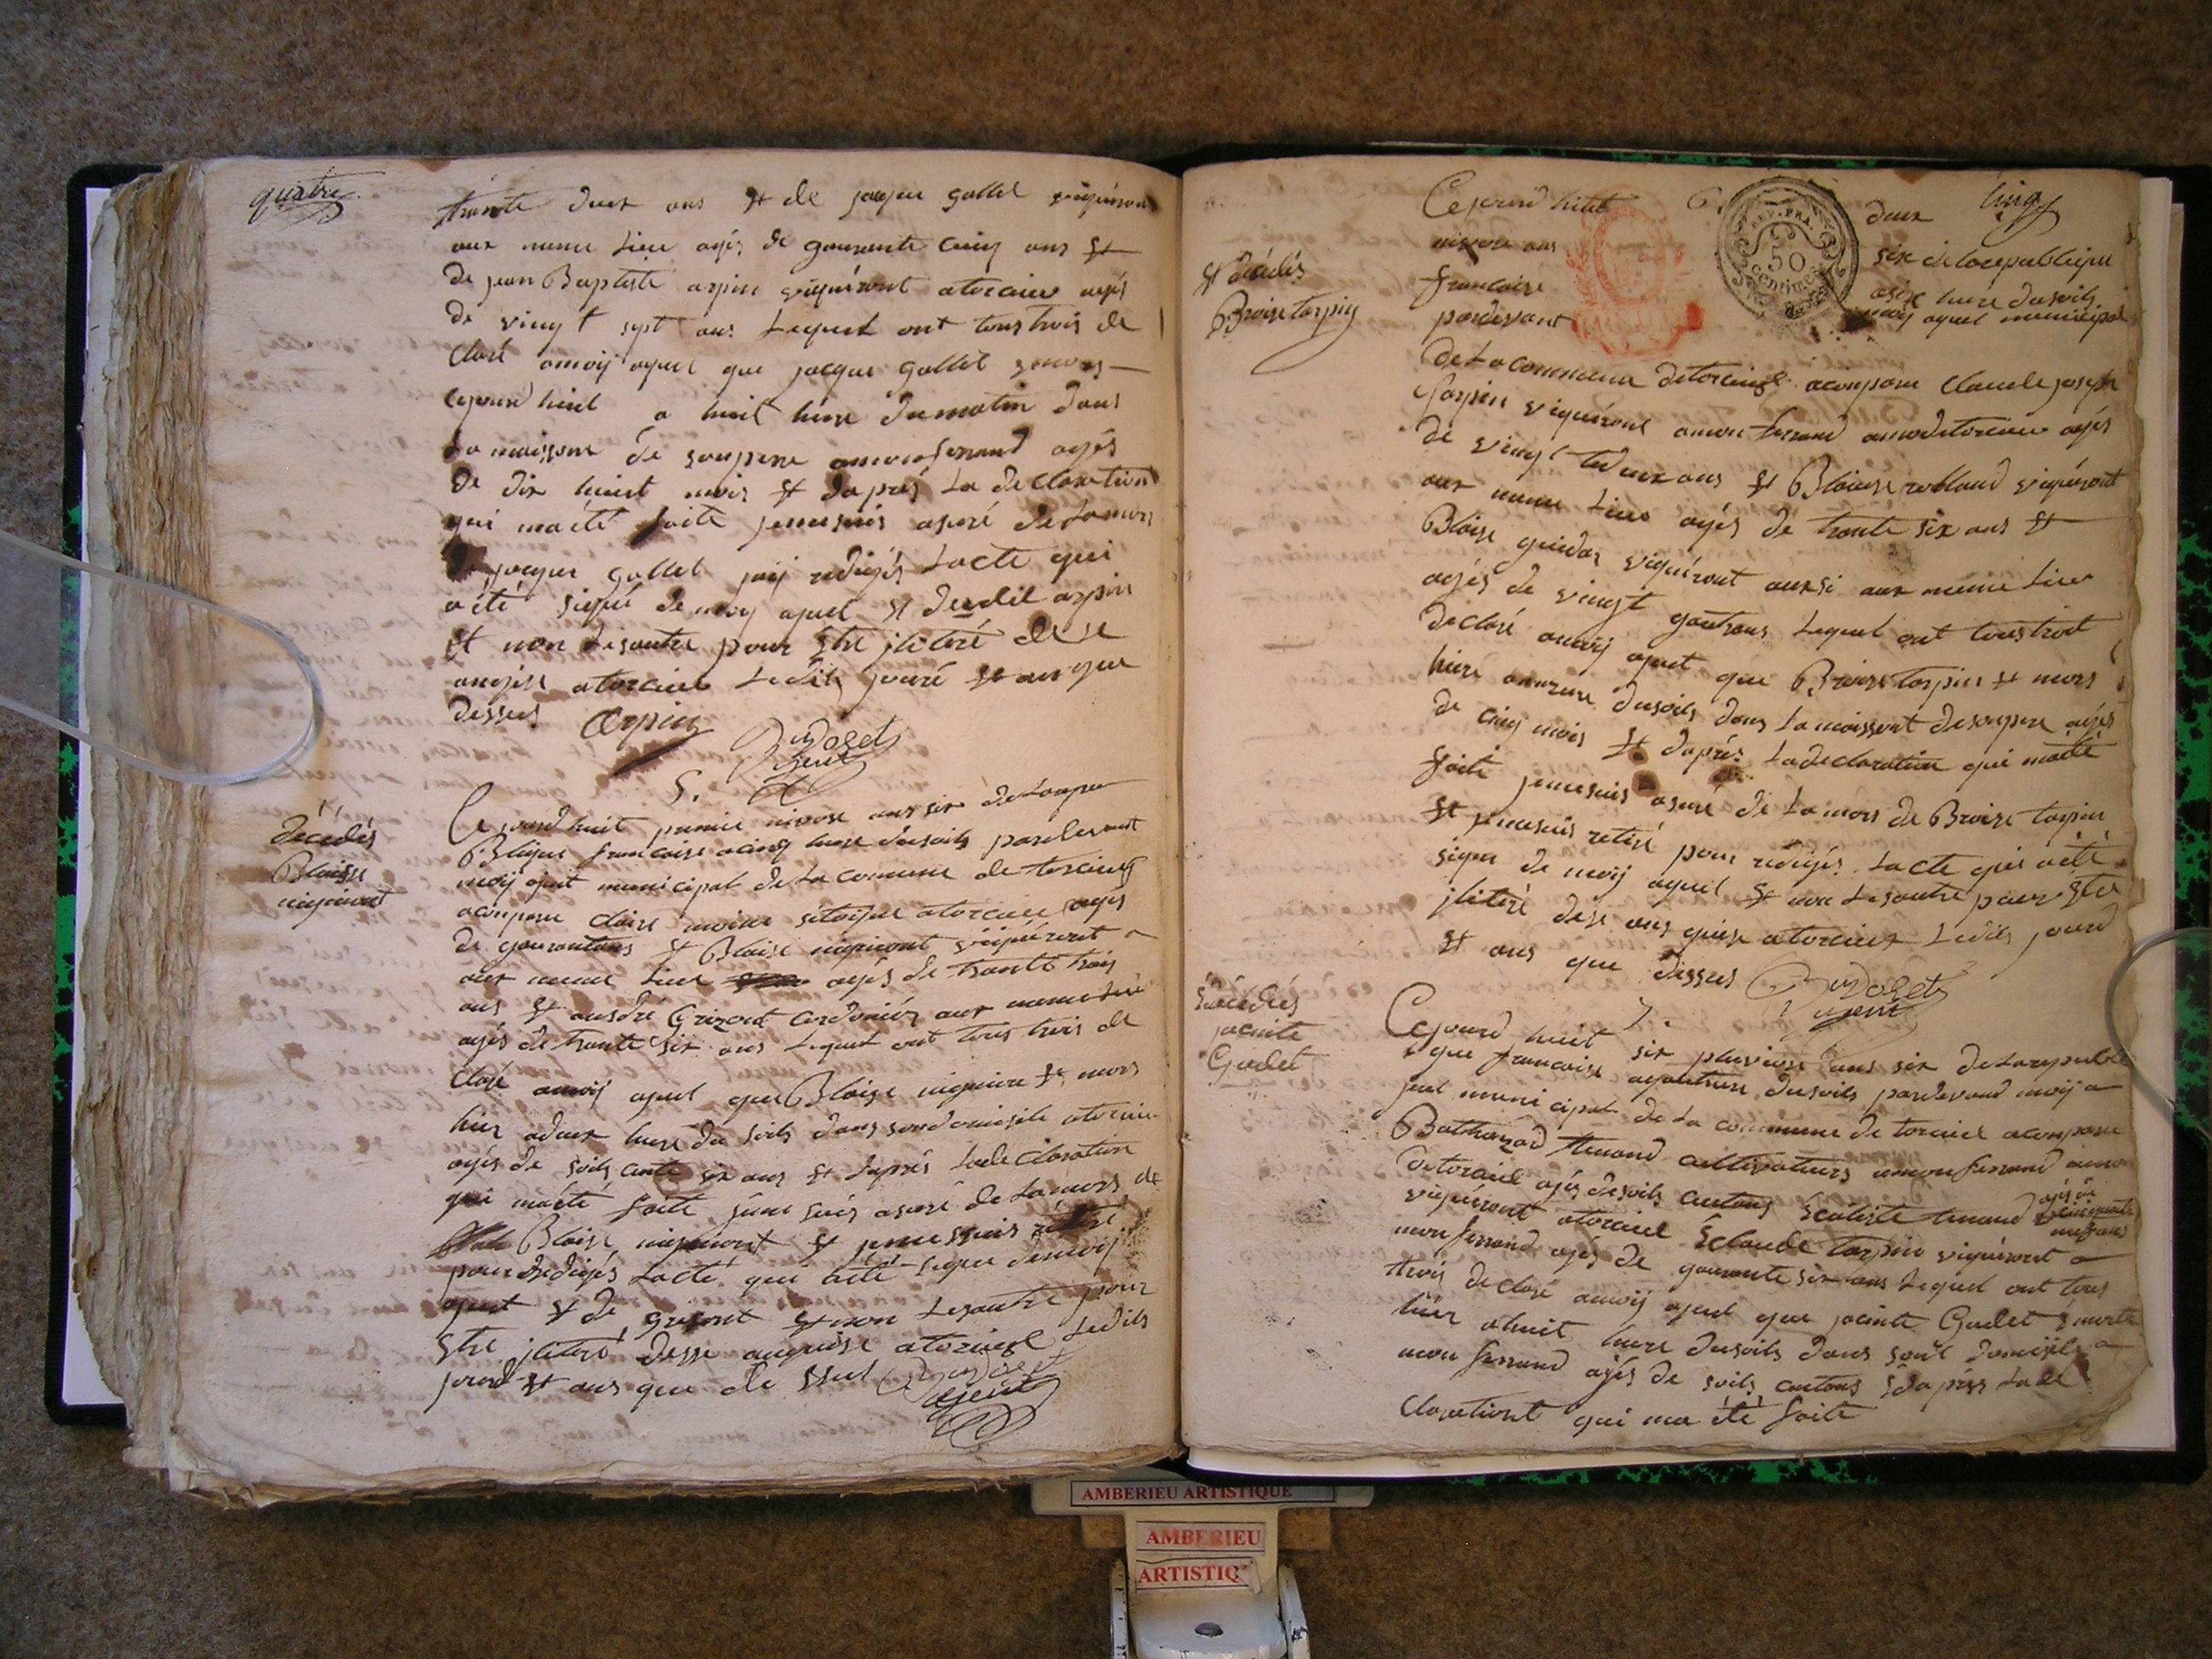 quatre
trante deux ans et de jacque gallet vigniront
aux meme lieu agés de gaurante cinq ans et
de jean Baptiste arpin vigniront atorcieu agés
de vingt sept ans Lequel ont tous trois de
claré amoij agent que jacque gallet
cejourd huit a huit hure dumatin dans
La maissone de sonpere amonferrand agés
de dix huist mois et dapres La declaration
qui maété faite jemesuis asuré deLamors
de jacque gallet jaij redigés Lacte qui
a été signé de moij agent et dudit arpin
et non Lesautre pour etre jliteré de se
anquise atorcieu Ledits jour et an que
dessus Arpin
Dudoset
agent
5.
décédés
Blaise
Cejourd huit premie nivose ans six deLarepu
Blique francoise acinq hure dusoits pardevant
moij agent municipal de La comune de torcieu
aconparu claire moine sitoijene atorcieu agés
de gaurantans et Blaise vigniront a
aux meme Lieu agés de trante trois
ans et andré Grizont cordonier aux meme Lieu
agés de trante six ans Lequel ont tous trois de
claré amoij agent que Blaise et mors
hier adeux hure du soits dans sondomisile atorcieu
agés de soits cante six ans et dapres Ladeclaration
qui maété faite jeme suis asuré de Lamors de
Blaise et jemessuis retiré
pour Redigés Lacte qui aété signé demoij
agent et de grisont et non Lesautre pour
etre jliteré desse anquise atorcieu Ledits
jourd et ans que de ssus Dudoset
agent
cinq
Cejourd huit 6. deux
nivose ans six de Larepublique
francoise asix hure dusoits
pardevant moij agent municipal
REP. FRA.
50
centimes
et décédés
Broise tarpin
de La commune detorcieu aconparu claude joseph
tarpin vigniront amonferrand amodetorcieu agés
de vingt tdeux ans et Blaise rolland vigniront
aux meme Lieu agés de trante six ans et
Blaise vigniront aursi aux meme Lieu
agés de vingt gautrans Lequel ont toustroit
declaré amoij agent que Broise tarpin et mors
hiere aonzure dusoits dans La maissont desonpere agés
de cinq mois et dapres Ladeclaration qui maété
faite jemesuis asuré de La mors de Broise tarpin
et jemesuis retiré pour rédigés Lacte qui aété
signé de moij agent et non Lesautre pour etre
jliteré dese anquise atorcieu Ledits jourd
et ans que dessus Dudoset
agent
7.
décédés
jacinte
Gudet
Cejourd huit six pluviose ans six deLarepubli
que francoise agautrure dusoits pardevand moij a
jent municipal de La commune de torcieu aconparu
Balthazard tenand cultivateurs amonferrand amo
detorcieu agés desoits cantans et tenand agés de cinquante
neufans
vigniront atorcieu et claude tarpin vigniront a
monferrand agés de gaurante six ans Lequel ont tous
trois declaré amoij agent que jacinte Gudet et morte
hier ahuit hure dusoits dans sont domisile a
monferrand agés de soits cantans et dapres Lade
clarationt qui ma été faite
AMBERIEU ARTISTIQUE
AMBERIEU
ARTISTIQ